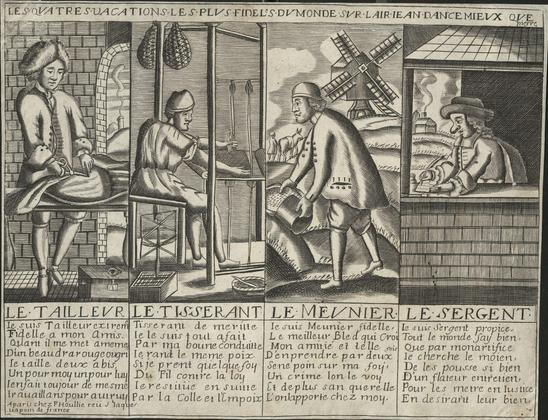 LES QVATRES VACATIONS LES PLVS FIDEL'S DV MONDE SVR LAIR IEAN DANCE MIEVX QVE
Pierre
LE TAILLEVR
Ie suis Tailleur extrem
Fidelle a mon Armis.
Quant il me met amene
D'un beau drar rouge ou gri
Ie taille deux a bis
Un pour moy un pour luy
travaillans pour autruy
Aparis chez F Houllie reu S Iaque
LE TISSERANT
Tisserant de merite
Ie suis tout afait
Par ma boune conduitte
Ie rand le meme poix
Si te prent quelque foy
Du Fil contre la loy
Ie restitue en suitte
Par la Colle et l'Empoix
LE MEVNIER
Ie suis Meunier fidelle.
Le meilleur Bled qui Croi
Mon amie et l'elle
D'enprendre par deux
Sene poin sur ma foy
Un crime lon le voy
Et de plus san querelle
L'on lapporie chez moy.
LE SERGENT
Ie suis Sergent propice.
Tout le monde say bien.
Que par mon artifice
Ie cherche le moien,
De les pousse si bien
D'un flateur entretien,
Pour les metre en lustice
En desirant leur bien.